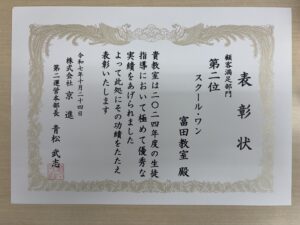 表彰状
顧客満足部門
第二位
スクール・ワン
富田教室 殿
貴教室は二〇二四年度の生徒
指導において極めて優秀な
実績をあげられました
よって此処にその功績をたたえ
表彰いたします
令和七年十月二十四日
株式会社 京 進
第二運営本部長 青松 武志